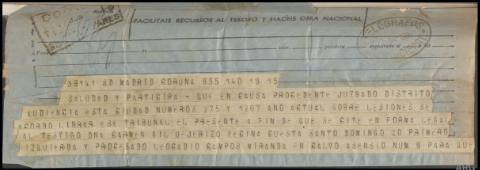 FACILITAIS RECURSOS AL TESORO Y HACEIS OBRA NACIONAL
TELEGRAFOS
MADRID CORUNA 855 140 19 15
SALUDAD Y PARTICIPA - QUE EN CAUSA PROCEDENTE JUZGADO DISTRITO
AUDIENCIA ESTA CIUDAD NUMEROS 275 Y 1267 ANO ACTUAL SOBRE LESIONES DE
LINBAR ESE TRIBUNAL EL PRESENTE A FIN DE QUE SE CITE EN FORMA LEGAL
AL TESTIGO DNA CARMEN GIL OJERIZO REGINA CUESTA SANTO DOMINGO 20 PRIMERO
IZQUIERDA Y PROCESADO LEOCADIO CAMPOS MIRANDA EN CALVO ASENSIO NUM 9 PARA QUE